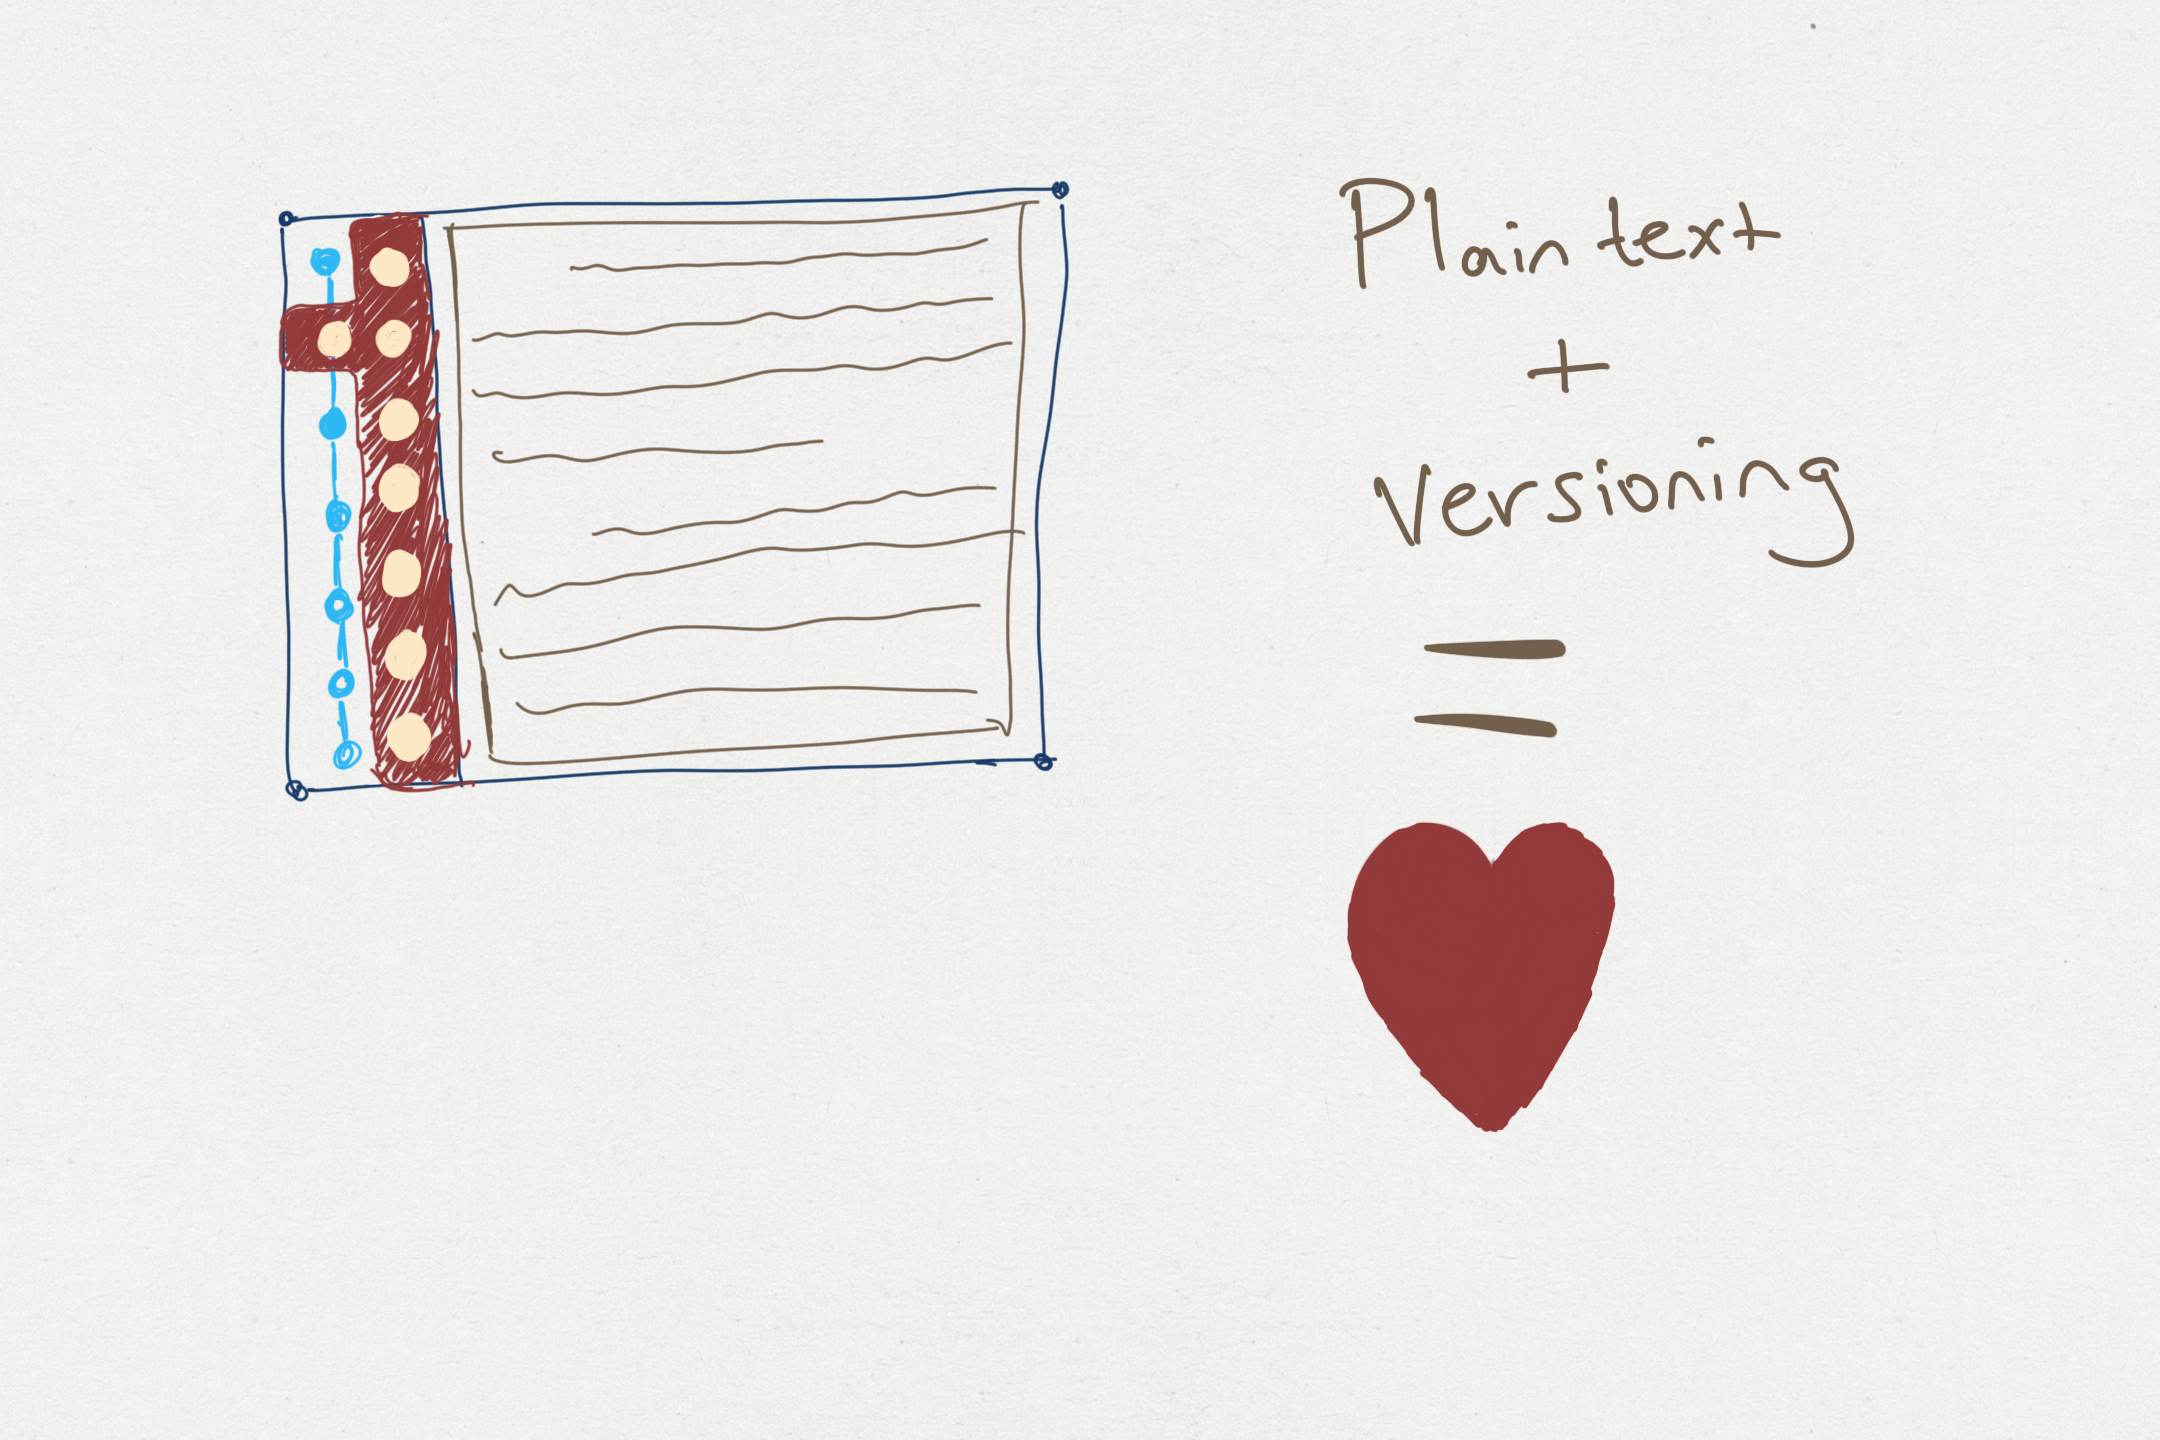 Plain text
+
Versioning
=